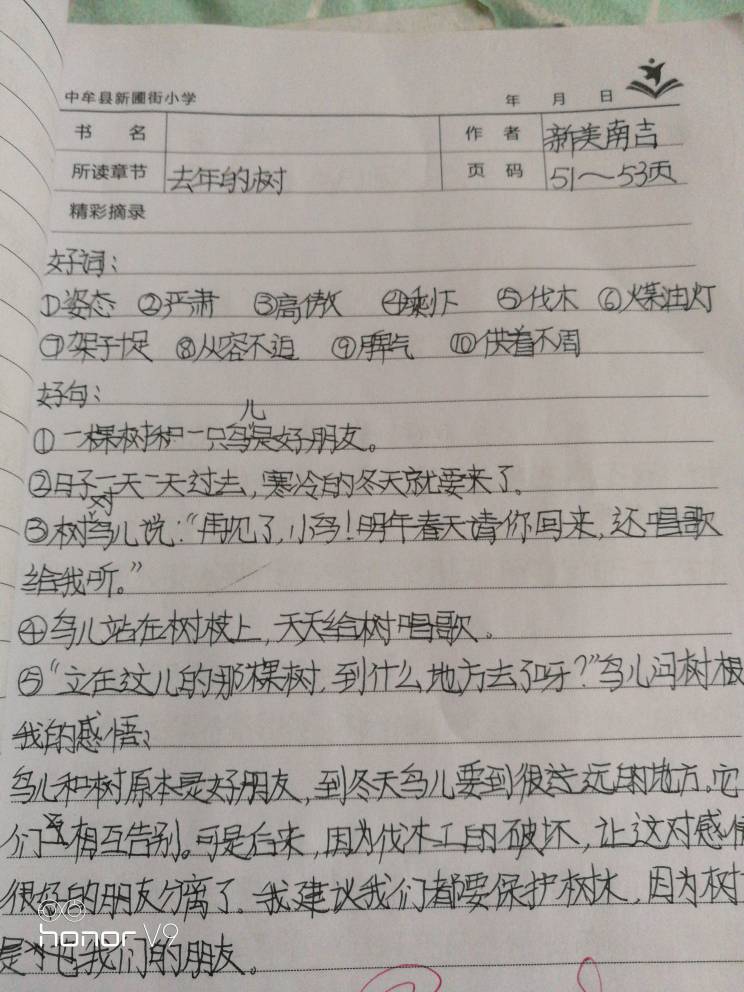 中牟县新圃街小学 年 月 日
书 名 作 者 新美南吉
所读章节 去年的树 页 码 51~53页
精彩摘录
好词：
①姿态 ②严肃 ③高傲 ④剩下 ⑤伐木 ⑥煤油灯
⑦架子十足 ⑧从容不迫 ⑨脾气 ⑩供着不周
好句：
①一棵树和一只鸟儿是好朋友。
②日子一天一天过去，寒冷的冬天就要来了。
③树对鸟儿说：“再见了，小鸟！明年春天请你回来，还唱歌
给我听。”
④鸟儿站在树枝上，天天给树唱歌。
⑤“立在这儿的那棵树，到什么地方去了呀？”鸟儿问树根
我的感悟：
鸟儿和树原本是好朋友，到冬天鸟儿要到很远的地方。它
们互相告别。可是后来，因为伐木工的破坏，让这对感情
很好的朋友分离了。我建议我们都要保护树木，因为树
是我们的朋友。
honor V9